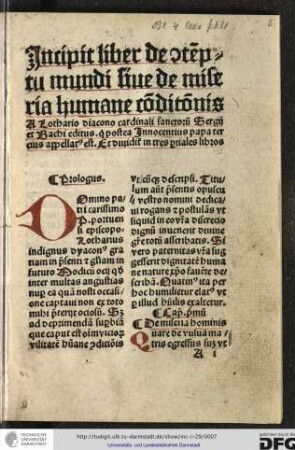 Incipit liber de ↄtēp-
tu mundi siue de mise
ria humane cōditōnis
A Lothario diacono cardinali sanctorū Sergij
et Bachi editus. q postea Innocentius papa ter
cius appellat᷒ est. Et diuidit in tres pͥnciales libros
¶ Prologus.
DOmino pa
tri carissimo
P. portuen
si episcopo.
Lotharius
indignus dyacon᷒ gra
tiam in pn̄ti et gl̄iam in
futuro Modicū ocij qd
inter multas angustias
nup ea quā nosti occasi
one captaui non ex toto
mihi pterijt ociosū. Sz
ad deprimendā supbiā
que caput est oīm vicioꝝ
vilitatē hūane ↄdicōnis
utcūqꝫ descripsi. Titu
lum aūt pn̄tis opuscu
li vestro nomini dedica
ui rogans et postulās vt
si quid in eo vr̄a discretio
dignū inuenerit diuine
grē totū ascribatis. Si
vero paternitas vr̄a sug
gesserit dignitatē huma
ne nature xp̄o fauēte de
scribā. Quatin᷒ ita per
hoc humilietur elat᷒ vt
ꝑ illud hūilis exaltetur.
¶ Cap. pͥmū
De miseria hominis
Quare de vulua ma
tris egressus suꝫ vt
A i
TECHNISCHE
UNIVERSITÄT
DARMSTADT
http://tudigit.ulb.tu-darmstadt.de/show/inc-ii-29/0007
Universitäts- und Landesbibliothek Darmstadt
gefördert durch die
DFG